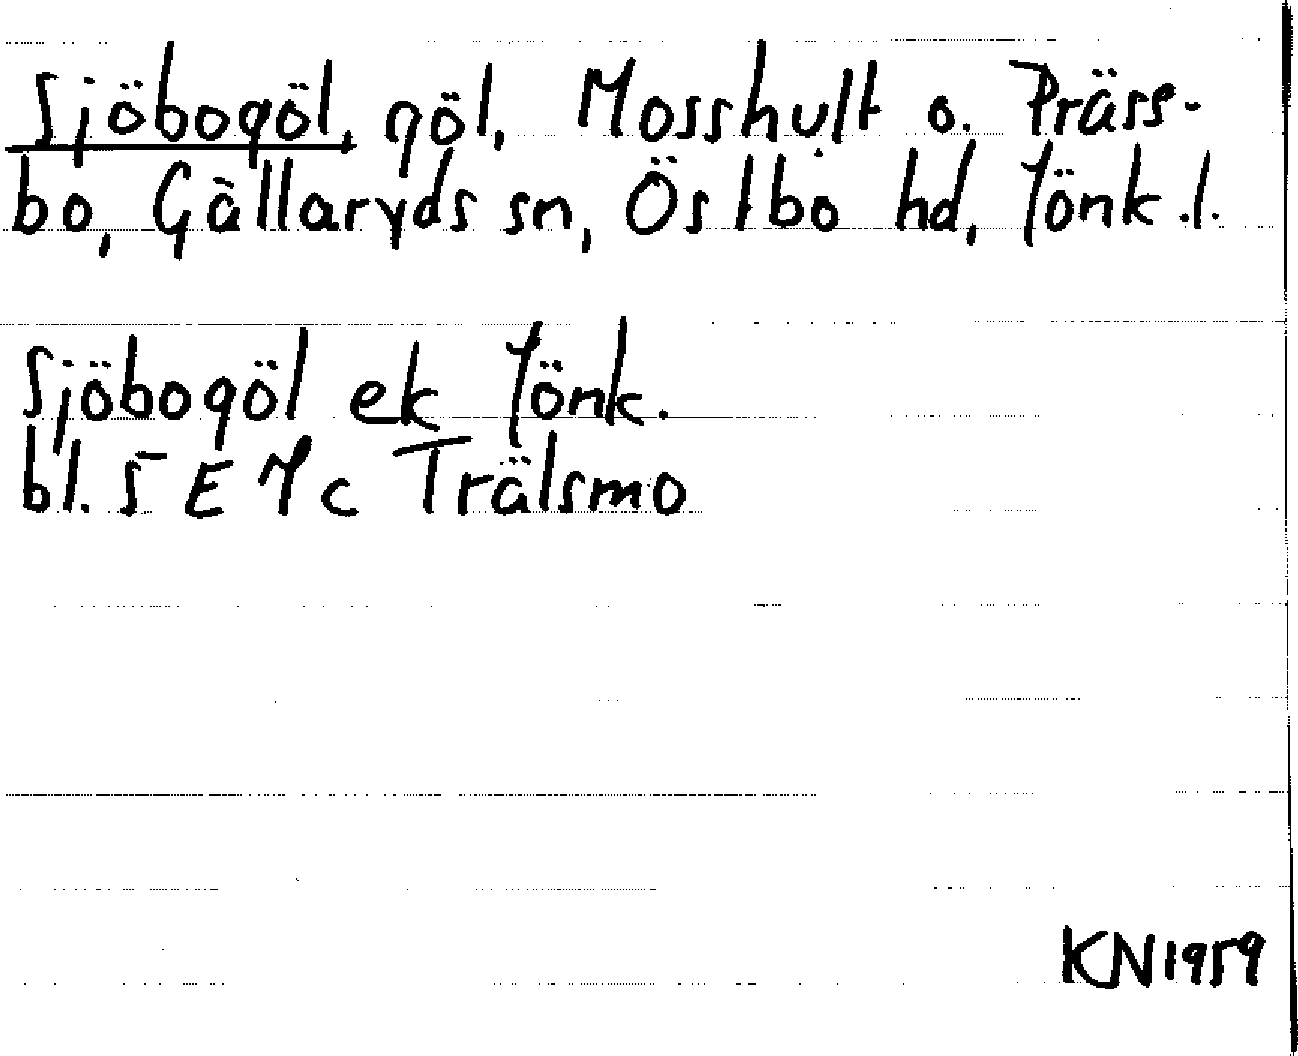 Sjöbogöl, göl, Mosshult o. Präss-
bo, Gällaryds sn, Östbo hd, Jönk.l.
Sjöbogöl ek Jönk.
bl. 5 E 7 c Trälsmo
KN1959